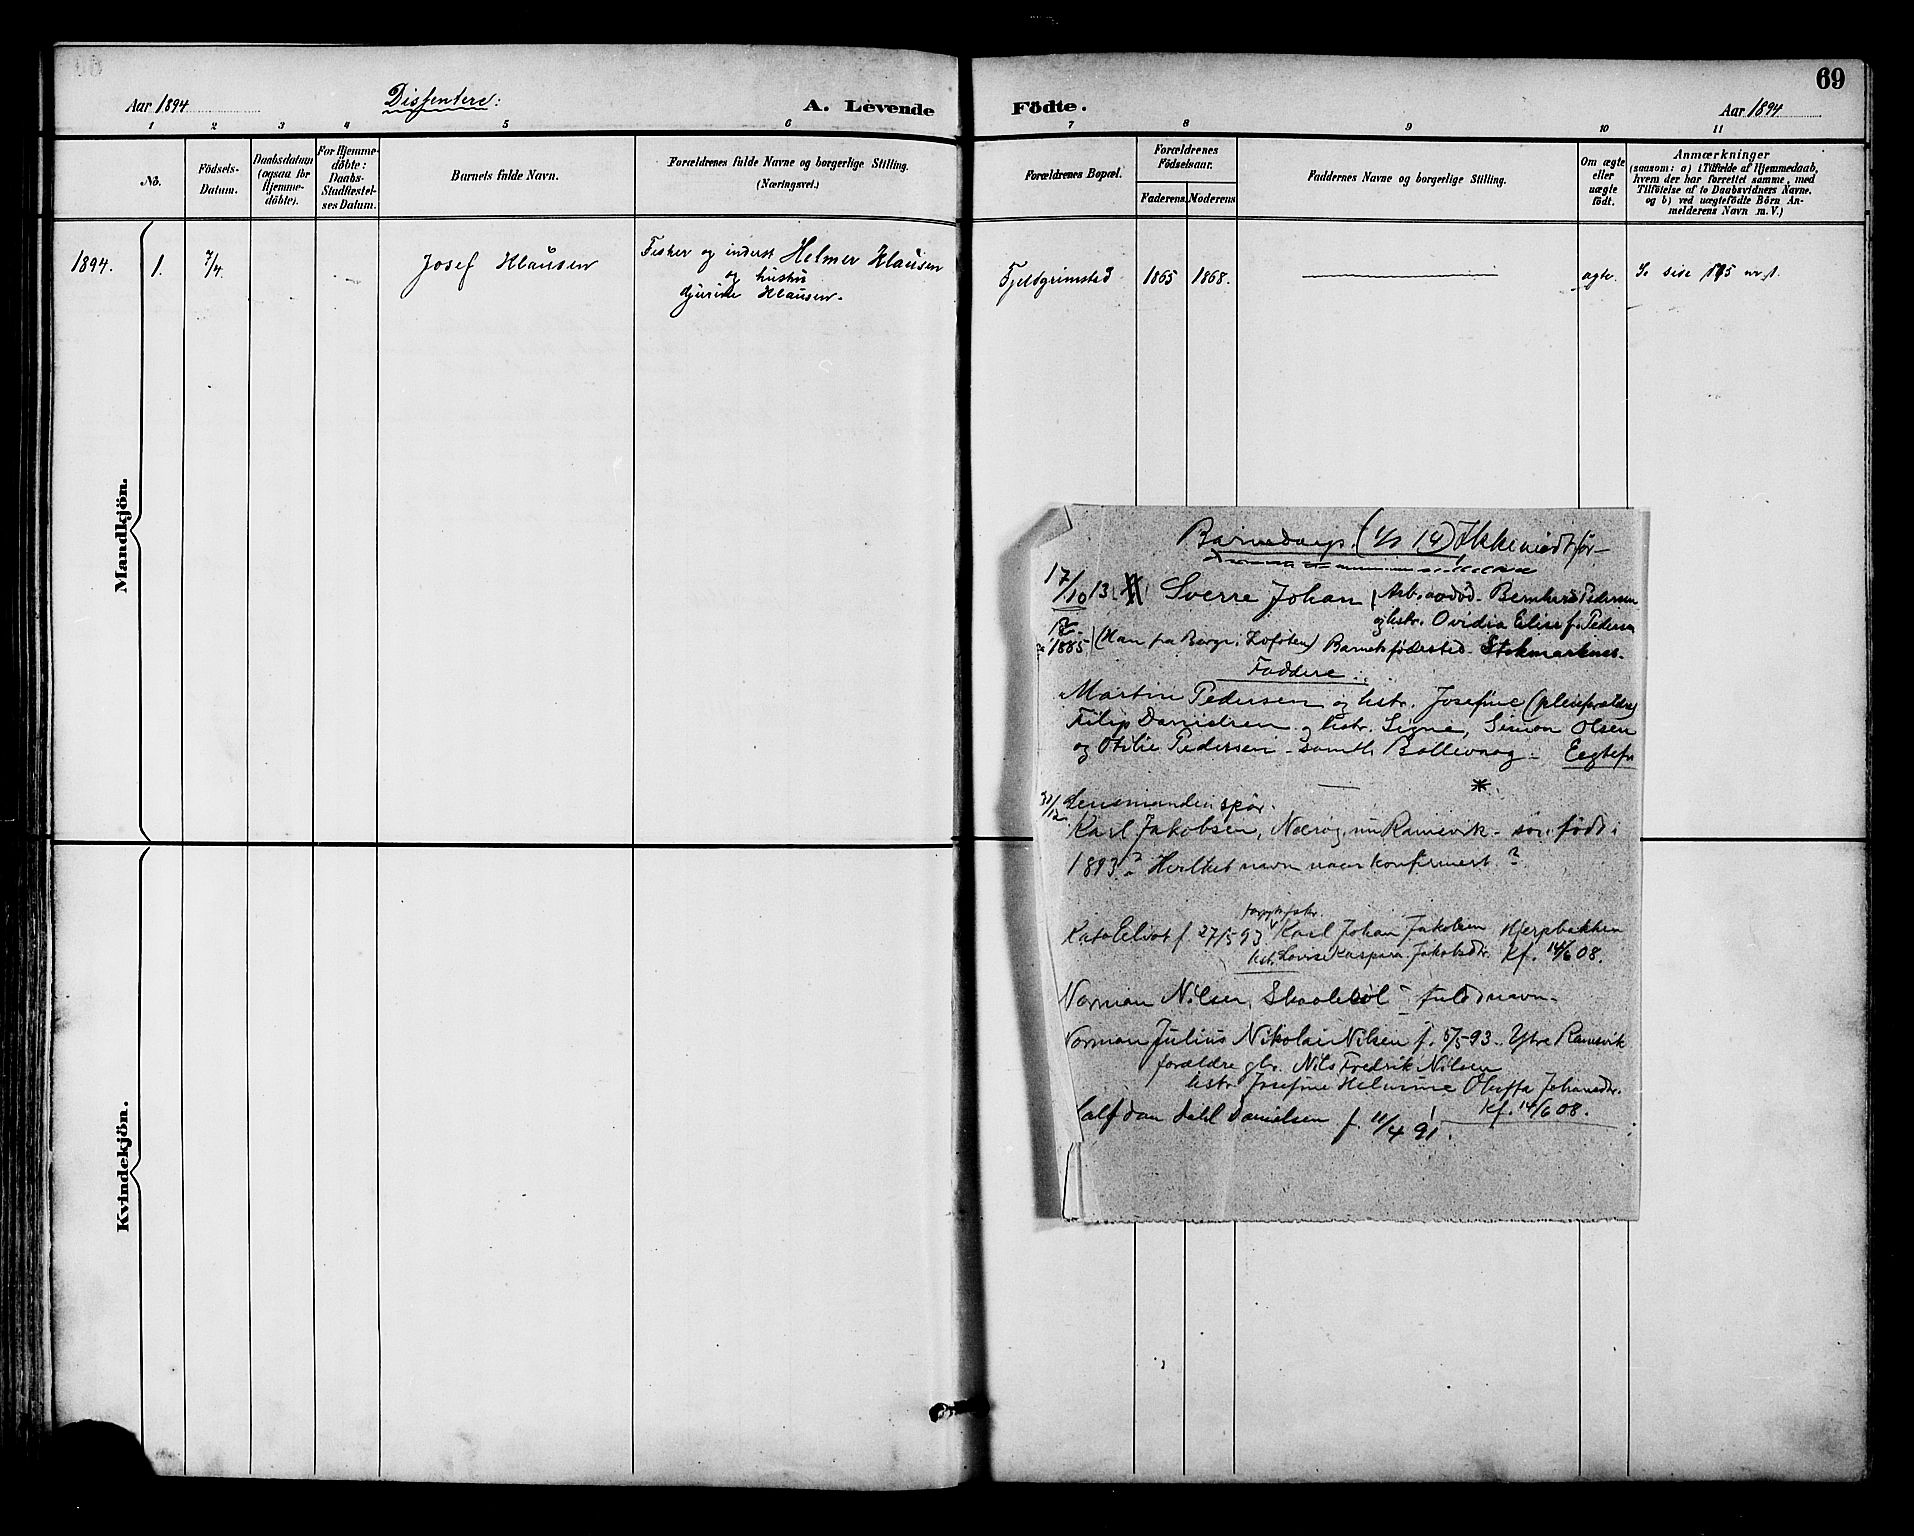 69
Aar 1894
Dissentere:
A. Levende
Födte.
Aar 1894
1 2 3 4 5 6 7 8 9 10 11
No.
Födsels-
Datum.
Daabsdatum
(ogsaa for
Hjemme-
döbte).
For Hjemme-
döbte:
Daabs-
Stadfæstel-
ses Datum.
Barnets fulde Navn.
Forældrenes fulde Navne og borgerlige Stilling.
(Næringsvei.)
Forældrenes Bopæl.
Forældrenes
Födselsaar.
Faderens.
Moderens
Faddernes Navne og borgerlige Stilling.
Om ægte
eller
uægte
födt.
Anmærkninger
(saasom: a) i Tilfælde af Hjemmedaab,
hvem der har forrettet samme, med
Tilföielse af to Daabsvidners Navne.
og b) ved uægtefödte Börn An-
melderens Navn m. V.)
1894.
1.
7/4.
Josef Klausen
Fisker og inderst Helmer Klausen
og hustru
Klausen.
Fjeldgrimstad
1865
1868.
ægte.
Se side nr 1.
Mandkjön.
Kvindekjön.
Barnedaap. Ikke indfør
17/10 13 Sverre Johan Arb. Pedersen
og hstr. Ovidia f. Pedersen
1885 (Han fra Borge i Lofoten) Barnets fødested Stokmarknes.
Faddere:
Martin Pedersen og hstr. Josefine (pleieforældre)
Filip Danielsen og hstr. Signe, Simon Olsen
og Otilie Pedersen - samtl. - Eegtefø
*
Lensmanden spør.
Karl Jakobsen, Ramsvik - søn født i
1893? Hvilket navn naar konfirmert?
f. 27/5 93 Karl Johan Jakobsen
hstr. Kaspara Jakobsdr. Kf. 14/6 08.
Norman Nilsen, - fuldt navn -
Norman Julius Nikolai Nilsen f. 5/5 93. Ytre Ramsvik
forældre gbr. Nils Fredrik Nilsen
hstr. Josefine Oluffa Johansdr.
Kf. 14/6 08.
Dahl Danielsen f. 11/4 91.